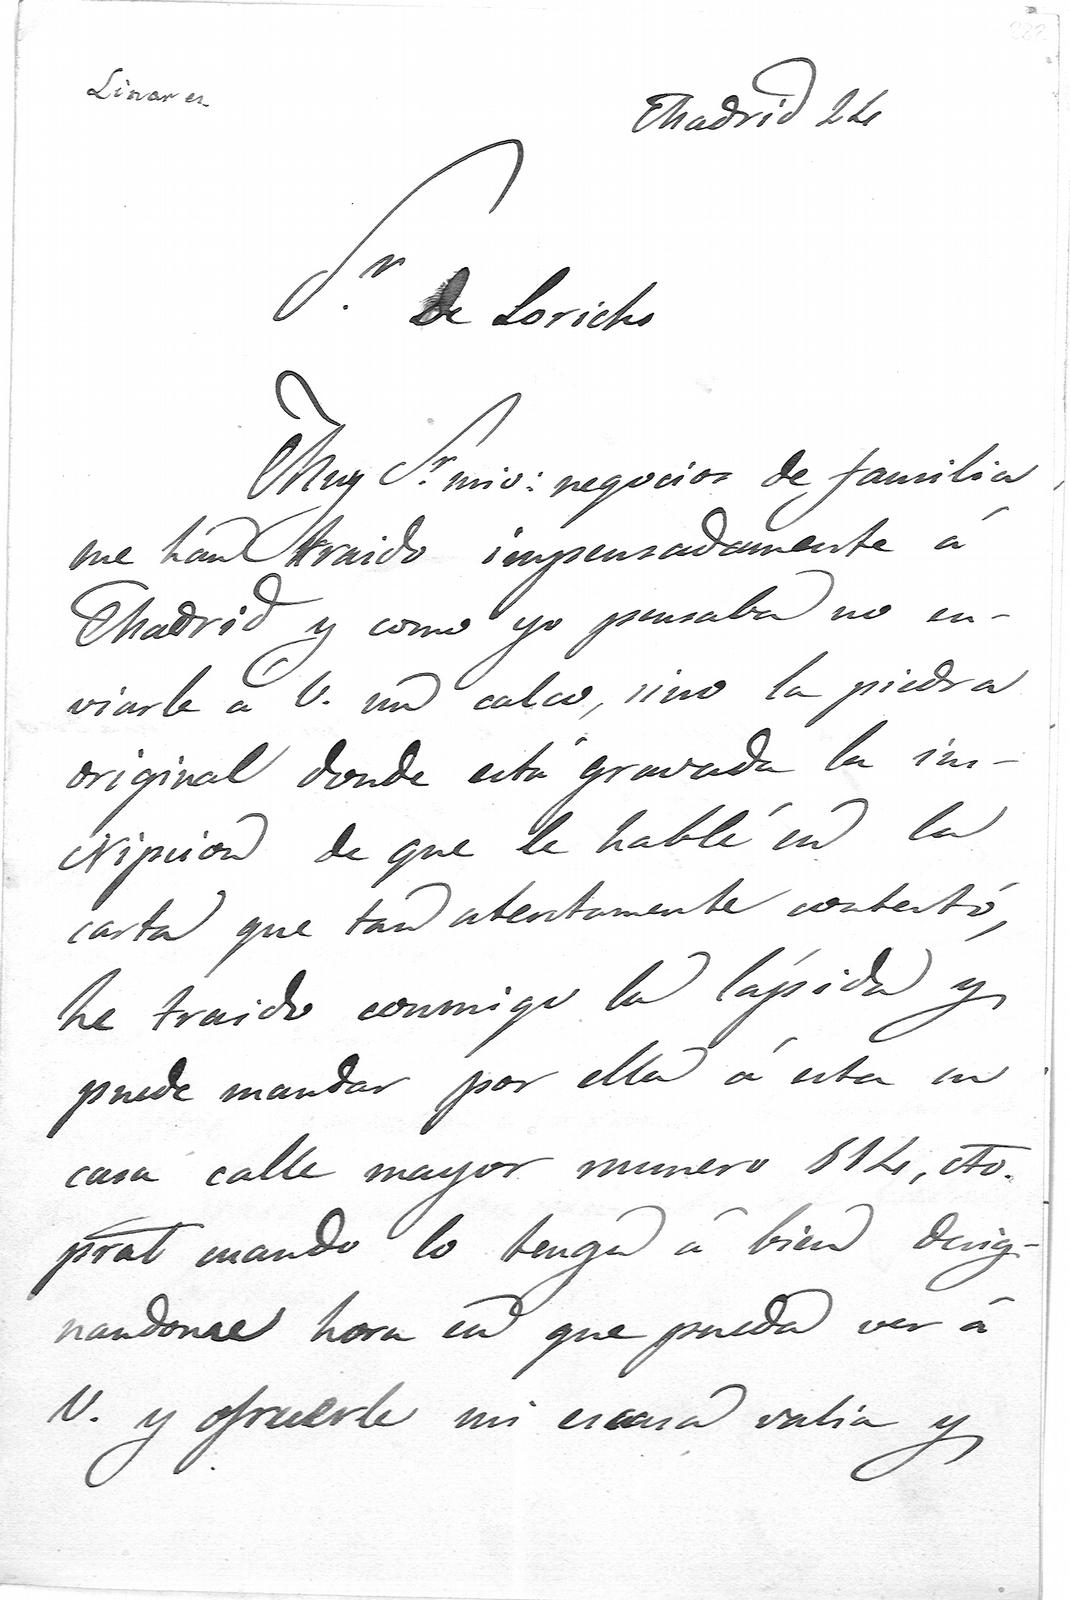 222
Linares
Madrid 24
S.r de Lorichs
Muy S.r mio: negocios de familia,
me han traido impensadamente á
Madrid y como yo pensaba no en-
viarle á V. un calco, sino la piedra
original donde está gravada la ins-
cripcion de que le hablé en la
carta que tan atentamente contestó,
he traido conmigo la lápida y
puede mandar por ella á esta su
casa calle mayor numero 114, cto.
pral cuando lo tenga á bien desig-
nandome hora en que pueda ver á
V. y ofrecerle mi escasa valia y